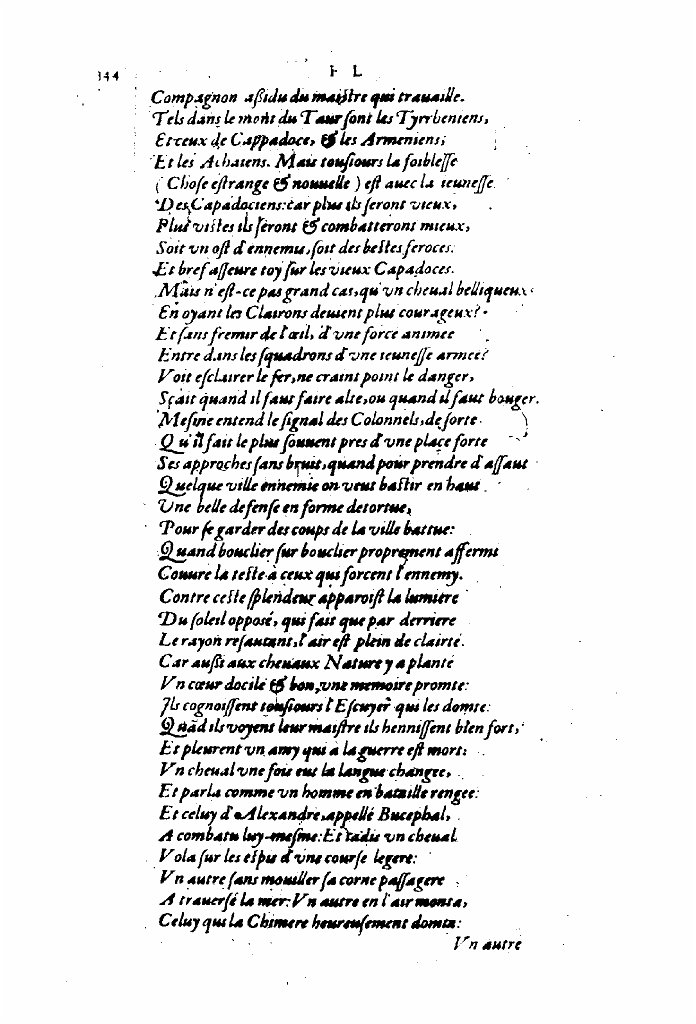 344
F L
Compagnon aßidu du maistre qui trauaille.
Tels dans le mont du Taur sont les Tyrrheniens,
Et ceux de Cappadoce, & les Armeniens,
Et les Achaiens. Mais tousiours la foiblesse
( Chose estrange & nouuelle ) est auec la ieunesse
Des Capadociens: car plus ils seront vieux,
Plus vistes ils seront & combatteront mieux,
Soit vn ost d'ennemis, soit des bestes feroces.
Et bref asseure toy sur les vieux Capadoces.
Mais n'est-ce pas grand cas, qu'vn cheual belliqueux
En oyant les Clairons deuient plus courageux?
Et sans fremir de l'œil, d'vne force animee
Entre dans les squadrons d'vne ieunesse armee?
Voit esclairer le fer, ne craint point le danger,
Sçait quand il faut faire alte, ou quand il faut bouger.
Mesme entend le signal des Colonnels, de sorte
Qu'il fait le plus souuent pres d'vne place forte
Ses approches sans bruit, quand pour prendre d'assaut
Quelque ville ennemie on veut bastir en haut
Vne belle defense en forme de tortue,
Pour se garder des coups de la ville battue:
Quand bouclier sur bouclier proprement affermi
Couure la teste à ceux qui forcent l'ennemy.
Contre ceste splendeur apparoist la lumiere
Du soleil opposé, qui fait que par derriere
Le rayon resautant, l'air est plein de clairté.
Car außi aux cheuaux Nature y a planté
Vn cœur docile & bon, vne memoire promte:
Ils cognoissent tousiours l'Escuyer qui les domte:
Quãd ils voyent leur maistre ils hennissent bien fort,
Et pleurent vn amy qui à la guerre est mort:
Vn cheual vne fois eut la langue changee,
Et parla comme vn homme en bataille rengee:
Et celuy d'Alexandre, appellé Bucephal,
A combatu luy-mesme: Et iadis vn cheual
Vola sur les espis d'vne course legere:
Vn autre sans mouiller sa corne passagere
A trauersé la mer: Vn autre en l'air monta,
Celuy qui la Chimere heureusement domta:
Vn autre